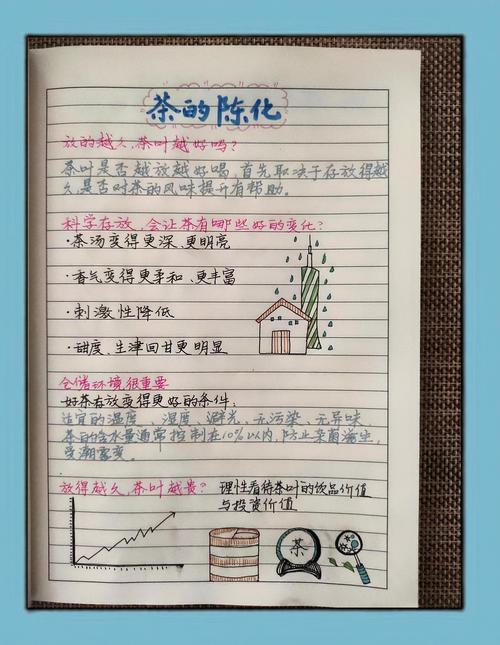 茶的陈化
放的越久,茶叶越好吗?
茶叶是否越放越好喝,首先取决于存放得越
久是否对茶的风味提升有帮助。
科学存放,会让茶有哪些好的变化?
·茶汤变得更深、更明亮
·香气变得更柔和、更丰富
·刺激性降低
·甜度、生津回甘更明显
仓储环境很重要
好茶存放变得更好的条件:
适宜的温度、湿度、避光、无污染、无异味。
茶的含水量通常控制在10%以内,防止菜菌滋生,
受潮霉变。
放得越久,茶叶越贵? 理性看待茶叶的饮品价值
与投资价值
茶